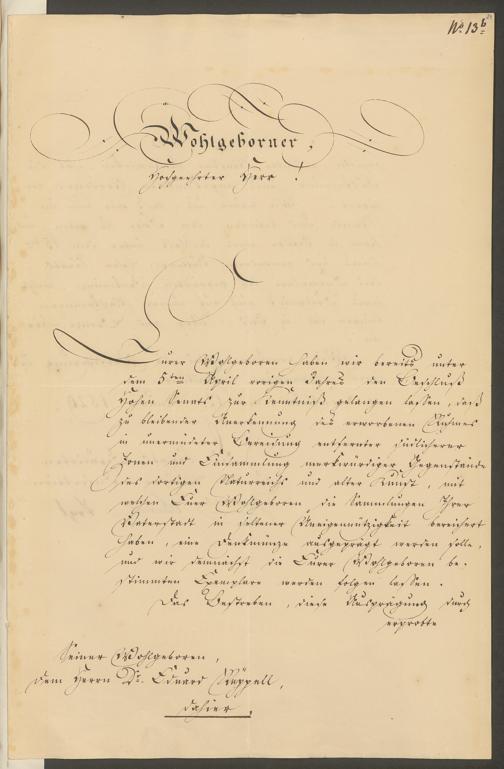 No 13 b
Wohlgeborner,
Hochgeehrter Herr!
Eurer Wohlgeboren haben wir bereits unter
dem 5ten April vorigen Jahres den Beschluß
Hohen Senats zur Kenntniß gelangen lassen, daß
zu bleibender Anerkennung des erworbenen Ruhmes
in unermüdeter Bereisung entfernter südlicherer
Zonen und Einsammlung merkwürdiger Gegenstände
des dortigen Naturreichs und alter Kunst, mit
welchen Euer Wohlgeboren die Sammlungen Ihrer
Vaterstadt in seltener Uneigennützigkeit bereichert
haben, eine Denkmünze ausgeprägt werden solle,
und wir demnächst die Eurer Wohlgeboren be-
stimmten Exemplare werden folgen lassen.
Das Bestreben, diese Ausprägung durch
erprobte
Seiner Wohlgeboren,
dem Herrn Dr. Eduard Rüppell,
dahier.